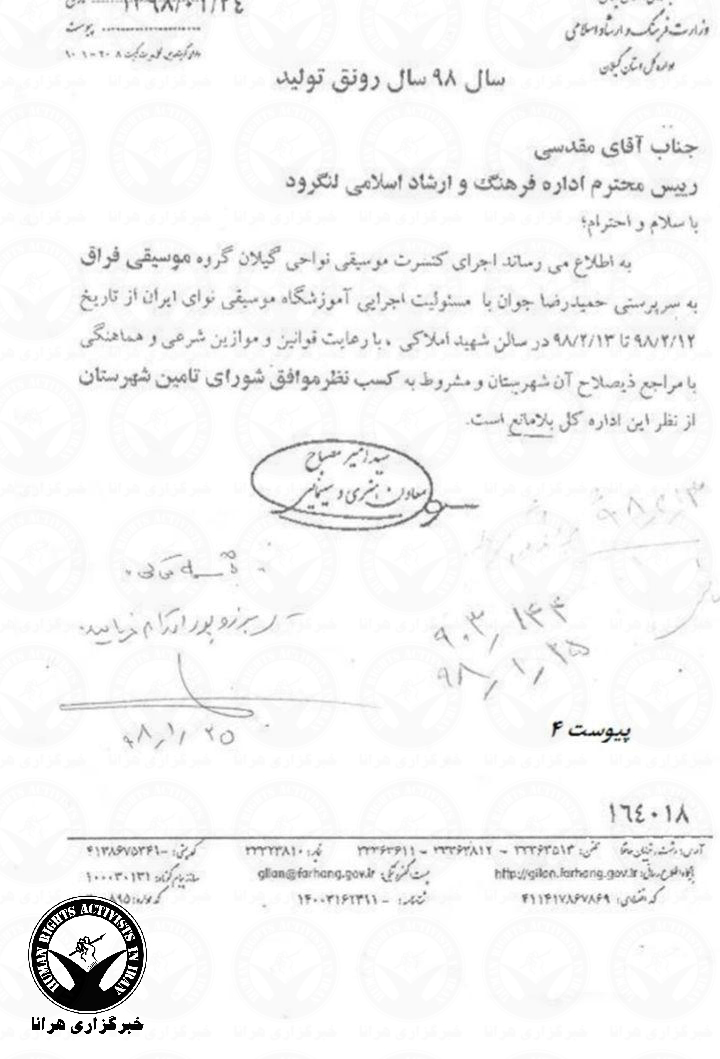 ۱۳۹۸/۰۱/۲۴
پیوست
وزارت فرهنگ و ارشاد اسلامی
اداره کل استان گیلان
سال ۹۸ سال رونق تولید
جناب آقای مقدسی
رییس محترم اداره فرهنگ و ارشاد اسلامی لنگرود
با سلام و احترام؛
به اطلاع می رساند اجرای کنسرت موسیقی نواحی گیلان گروه موسیقی فراق
به سرپرستی حمیدرضا جوان با مسئولیت اجرایی آموزشگاه موسیقی نوای ایران از تاریخ
۹۸/۲/۱۲ تا ۹۸/۲/۱۳ در سالن شهید املاکی ، با رعایت قوانین و موازین شرعی و هماهنگی
با مراجع ذیصلاح آن شهرستان و مشروط به کسب نظر موافق شورای تامین شهرستان
از نظر این اداره کل بلامانع است.
سید امیر مصباح
معاون هنری و سینمایی
۹۸/۲/۱۳
بسمه تعالی
اقدام فرمایید.
۹۰۳/۱۴۴
۹۸/۱/۲۵
۹۸/۱/۲۵
پیوست ۴
۱۶۴۰۱۸
تلفن: ۳۲۳۶۳۵۱۳ - ۳۲۳۶۳۸۱۲ - ۳۲۳۶۳۶۱۱
کدپستی: ۴۱۳۸۶۷۵۳۶۱
http://gilan.farhang.gov.ir
پست الکترونیکی: gilan@farhang.gov.ir
سامانه پیام کوتاه: ۱۰۰۰۰۳۰۱۳۱
کد اقتصادی: ۴۱۱۴۱۷۸۶۷۸۶۹
شناسه: ۱۴۰۰۳۱۶۲۳۱۱
HUMAN RIGHTS ACTIVISTS IN IRAN
خبرگزاری هرانا